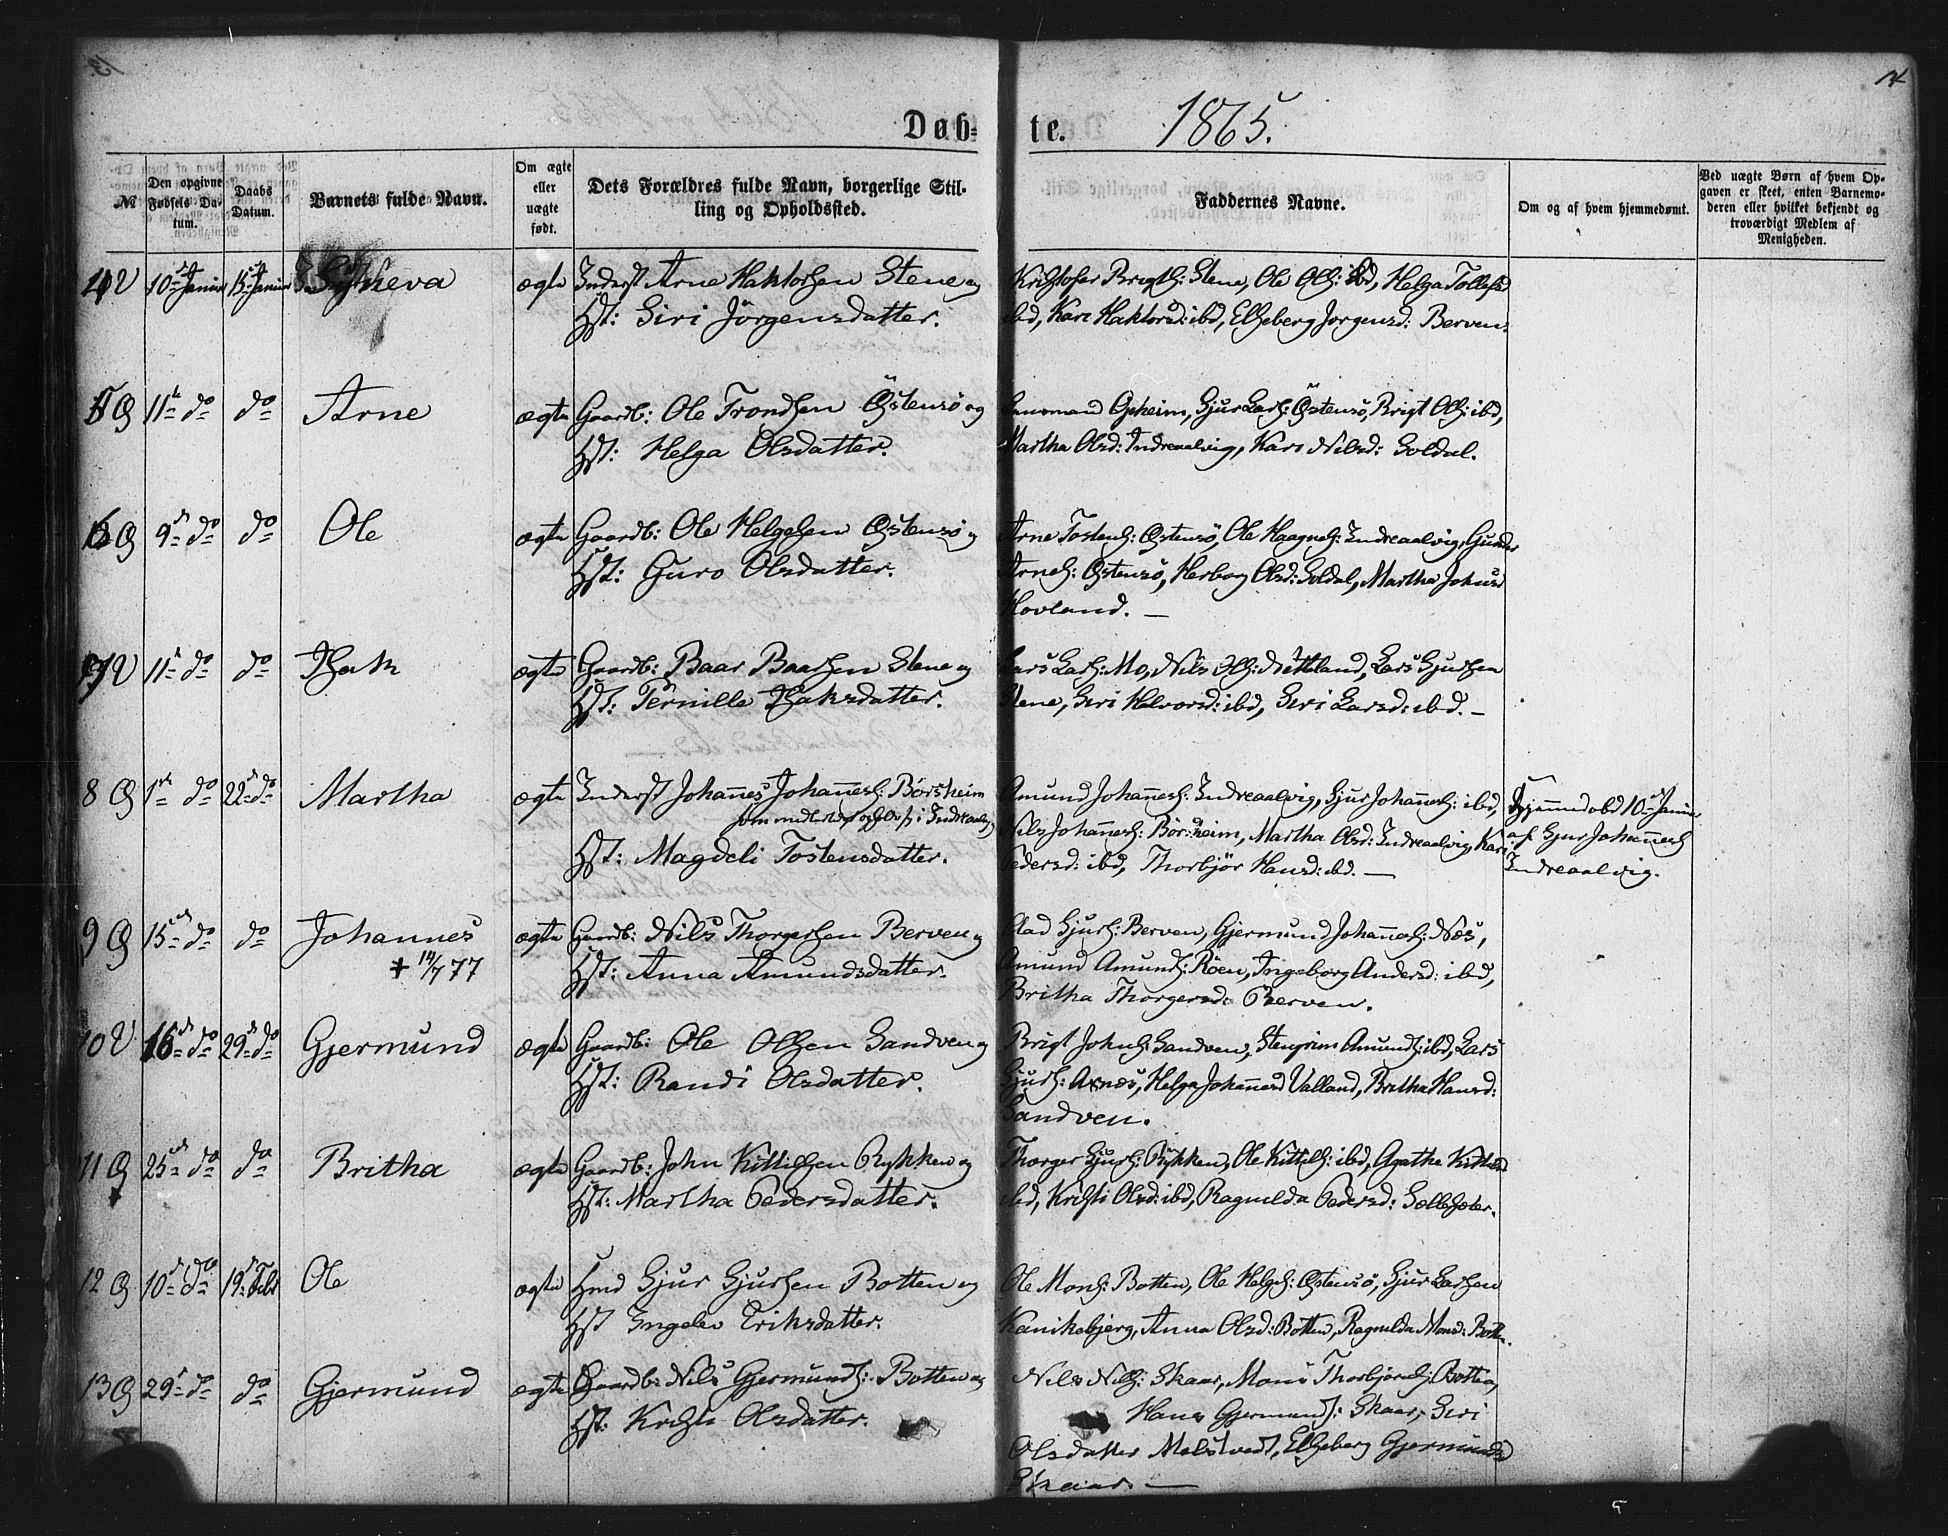 14
Døb-te. 1865.
№
Den opgivne Fødsels Datum.
Daabs Datum.
Barnets fulde Navn.
Om ægte eller uægte født.
Dets Forældres fulde Navn, borgerlige Stilling og Opholdssted.
Faddernes Navne.
Om og af hvem hjemmedømt.
Ved uægte Børn af hvem Opgaven er skeet, enten Barnemoderen eller hvilket bekjendt og troværdigt Medlem af Menigheden.
4 V 10de Januar 15de Januar Sygneva ægte Inderst Arne Haktorsen Stene og
Hst: Siri Jörgensdatter.
Kristofer Brigts: Stene, Ole Ols: ibd, Helga Tollefsd
ibd, Kari Haktorsd: ibd, Elseberg Jorgensd: Berven.
5 Ø 11te do do Arne ægte Gaardb: Ole Trondsen Östensö og
Hst: Helga Olsdatter.
Lensmand Opheim, Sjur Lars: Östensö, Brigt Ols: ibd,
Martha Olsd: Indreaalvig, Kari Nilsd: Soldal.
6 Ø 9de do do Ole ægte Gaardb: Ole Helgesen Östensö og
Hst: Guro Olsdatter.
Arne Tostens: Östensö, Ole Haagnes: Indreaalvig, Gunder
Arnes: Östensö, Herborg Olsd: Soldal, Martha Johnsd
Hovland. —
7 V 11te do do Isak ægte Gaardb: Baar Baarsen Stene og
Hst: Pernille Isaksdatter.
Lars Lars: Mo, Nils Ols: Nettland, Lars Sjursen
Stene, Siri Halvorsd: ibd, Siri Larsd: ibd. —
8 Ø 1ste do 22de do Martha ægte Inderst Johannes Johannes: Börsheim
Hst: Magdeli Tostensdatter.
Amund Johannes: Indreaalvig, Sjur Johannes: ibd,
Nils Johannes: Börsheim, Martha Olsd: Indreaalvig, Kari
Pedersd: ibd, Thorbjör Hansd: ibd. —
Hjemmedøbd 10de Januar
af Sjur Johannes
Indreaalvig.
9 Ø 15de do do Johannes ægte Gaardb: Nils Thorgersen Berven og
+ 14/7 77
Hst: Anna Amundsdatter.
Sjurs: Berven, Gjermund Johannes: Næs,
Amund Amunds: Röen, Ingeborg Andersd: ibd,
Britha Thorgersd: Berven.
10 V 16de do 29de do Gjermund ægte Gaardb: Ole Olsen Sandven og
Hst: Randi Olsdatter.
Brigt Johns: Sandven, Stengrim Amunds: ibd, Lars
Sjurs: Axnes, Helga Johannesd Valland, Britha Hansd:
Sandven.
11 Ø 25de do do Britha ægte Gaardb: John Kittilsen Rykken og
Hst: Martha Pedersdatter.
Thorger Sjurs: Rykken, Ole Kittils: ibd, Agatha Kittilsd
ibd, Kristi Olsd: ibd, Ragnilda Pedersd:
12 Ø 10de do 19de Febr Ole ægte Hmd Sjur Sjursen Botten og
Hst Ingelev Eriksdatter.
Ole Mons: Botten, Ole Helges: Östensö, Sjur Larsen
Kanikebjerg, Anna Olsd: Botten, Ragnilda Monsd: Botten.
13 Ø 29de do do Gjermund ægte Gaardb: Nils Gjermunds: Botten og
Hst: Kristi Olsdatter.
Nils Nils: Skaar, Mons Thorbjörns: Botten,
Hans Gjermunds: Skaar, Siri
Olsdatter Melstvedt, Elseberg Gjermundsd
Skaar. —